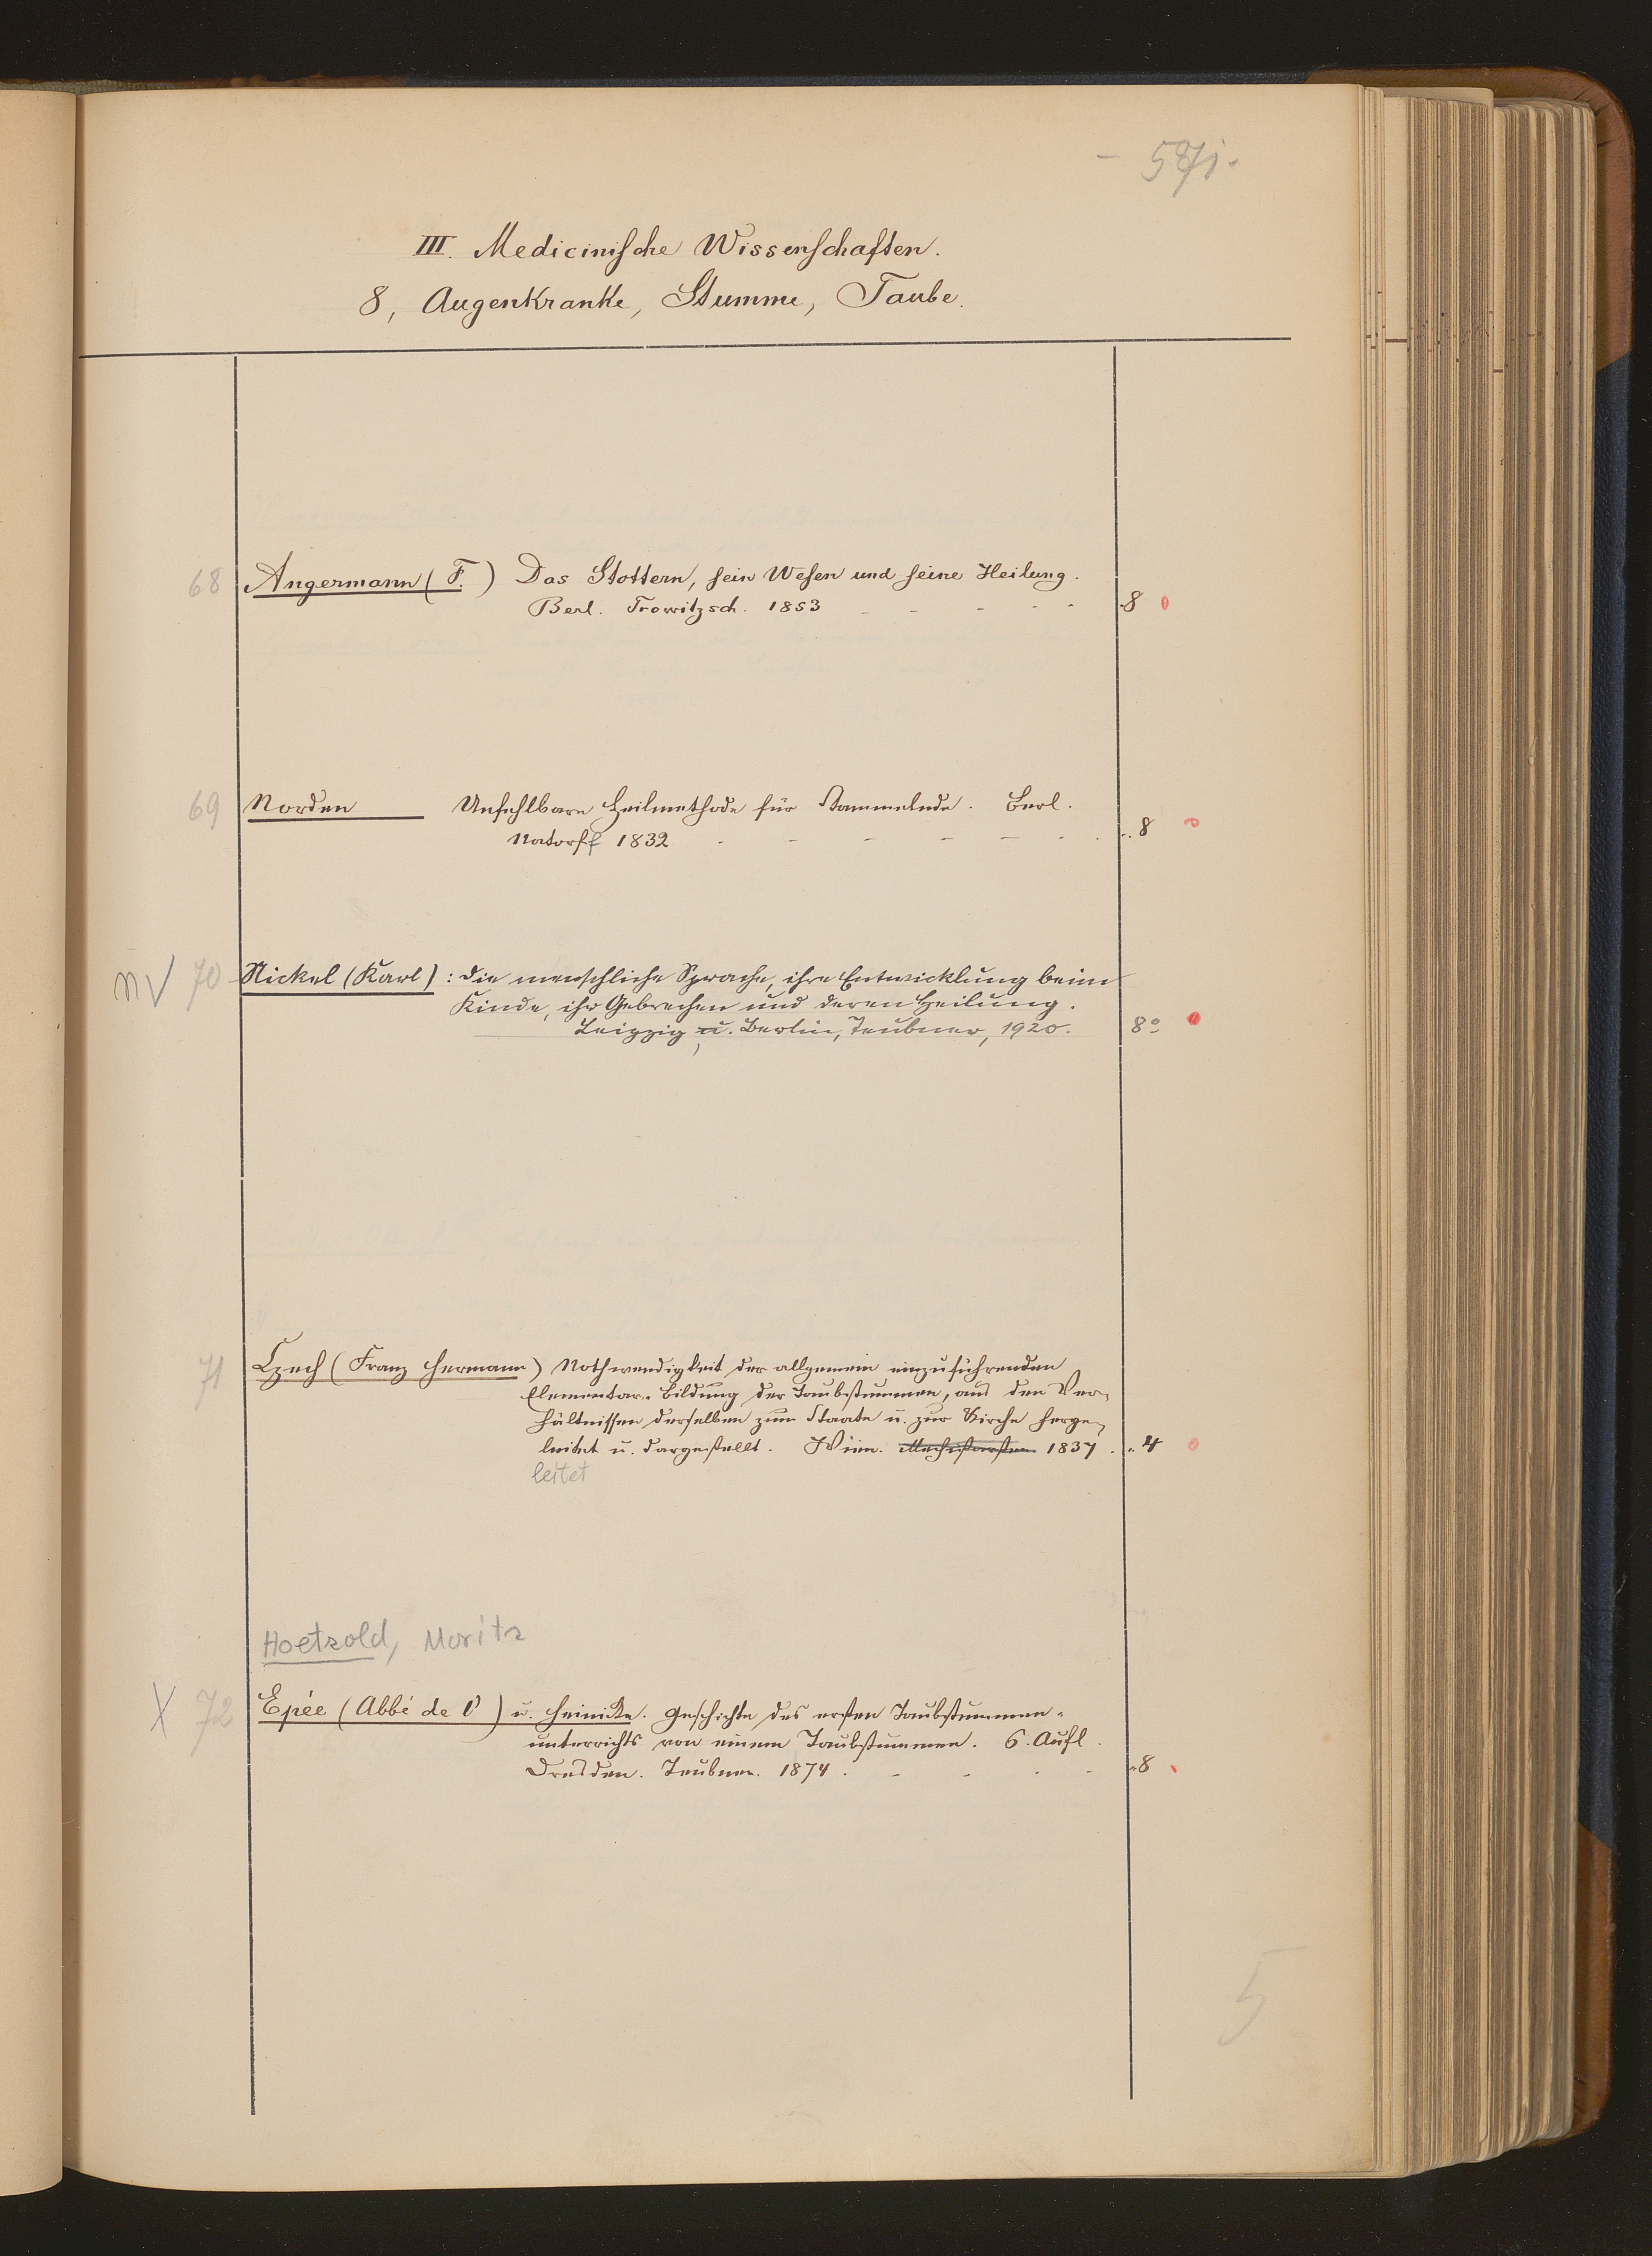 - 571.
III. Medicinische Wissenschaften.
8, Augenkranke, Stumme, Taube.
68 Angermann (F.) Das Stottern, sein Wesen und seine Heilung.
Berl. Trowitzsch. 1853 - - - - - 8
69 Norden Unfehlbare Heilmethode für Stammelnde. Berl.
Natorff 1832 - - - - - - „ 8
nV 70 Nickel (Karl): Die menschliche Sprache, ihre Entwicklung beim
Kinde, ihr Gebrechen und deren Heilung.
Leipzig u. Berlin, Teubner, 1920. 8°
71 Czech (Franz Hermann) Nothwendigkeit der allgemein einzuführenden
Elementar-Bildung der Taubstummen, aus den Ver-
hältnissen derselben zum Staate u. zur Kirche herge-
leitet u. dargestellt. Wien. 1837. „ 4
leitet
Hoetzold, Moritz
X 72 Epée (Abbé de l') u. Heinicke. Geschichte des ersten Taubstummen-
unterrichts von einem Taubstummen. 6. Aufl.
Dresden. Teubner. 1874. - - - - „ 8
5